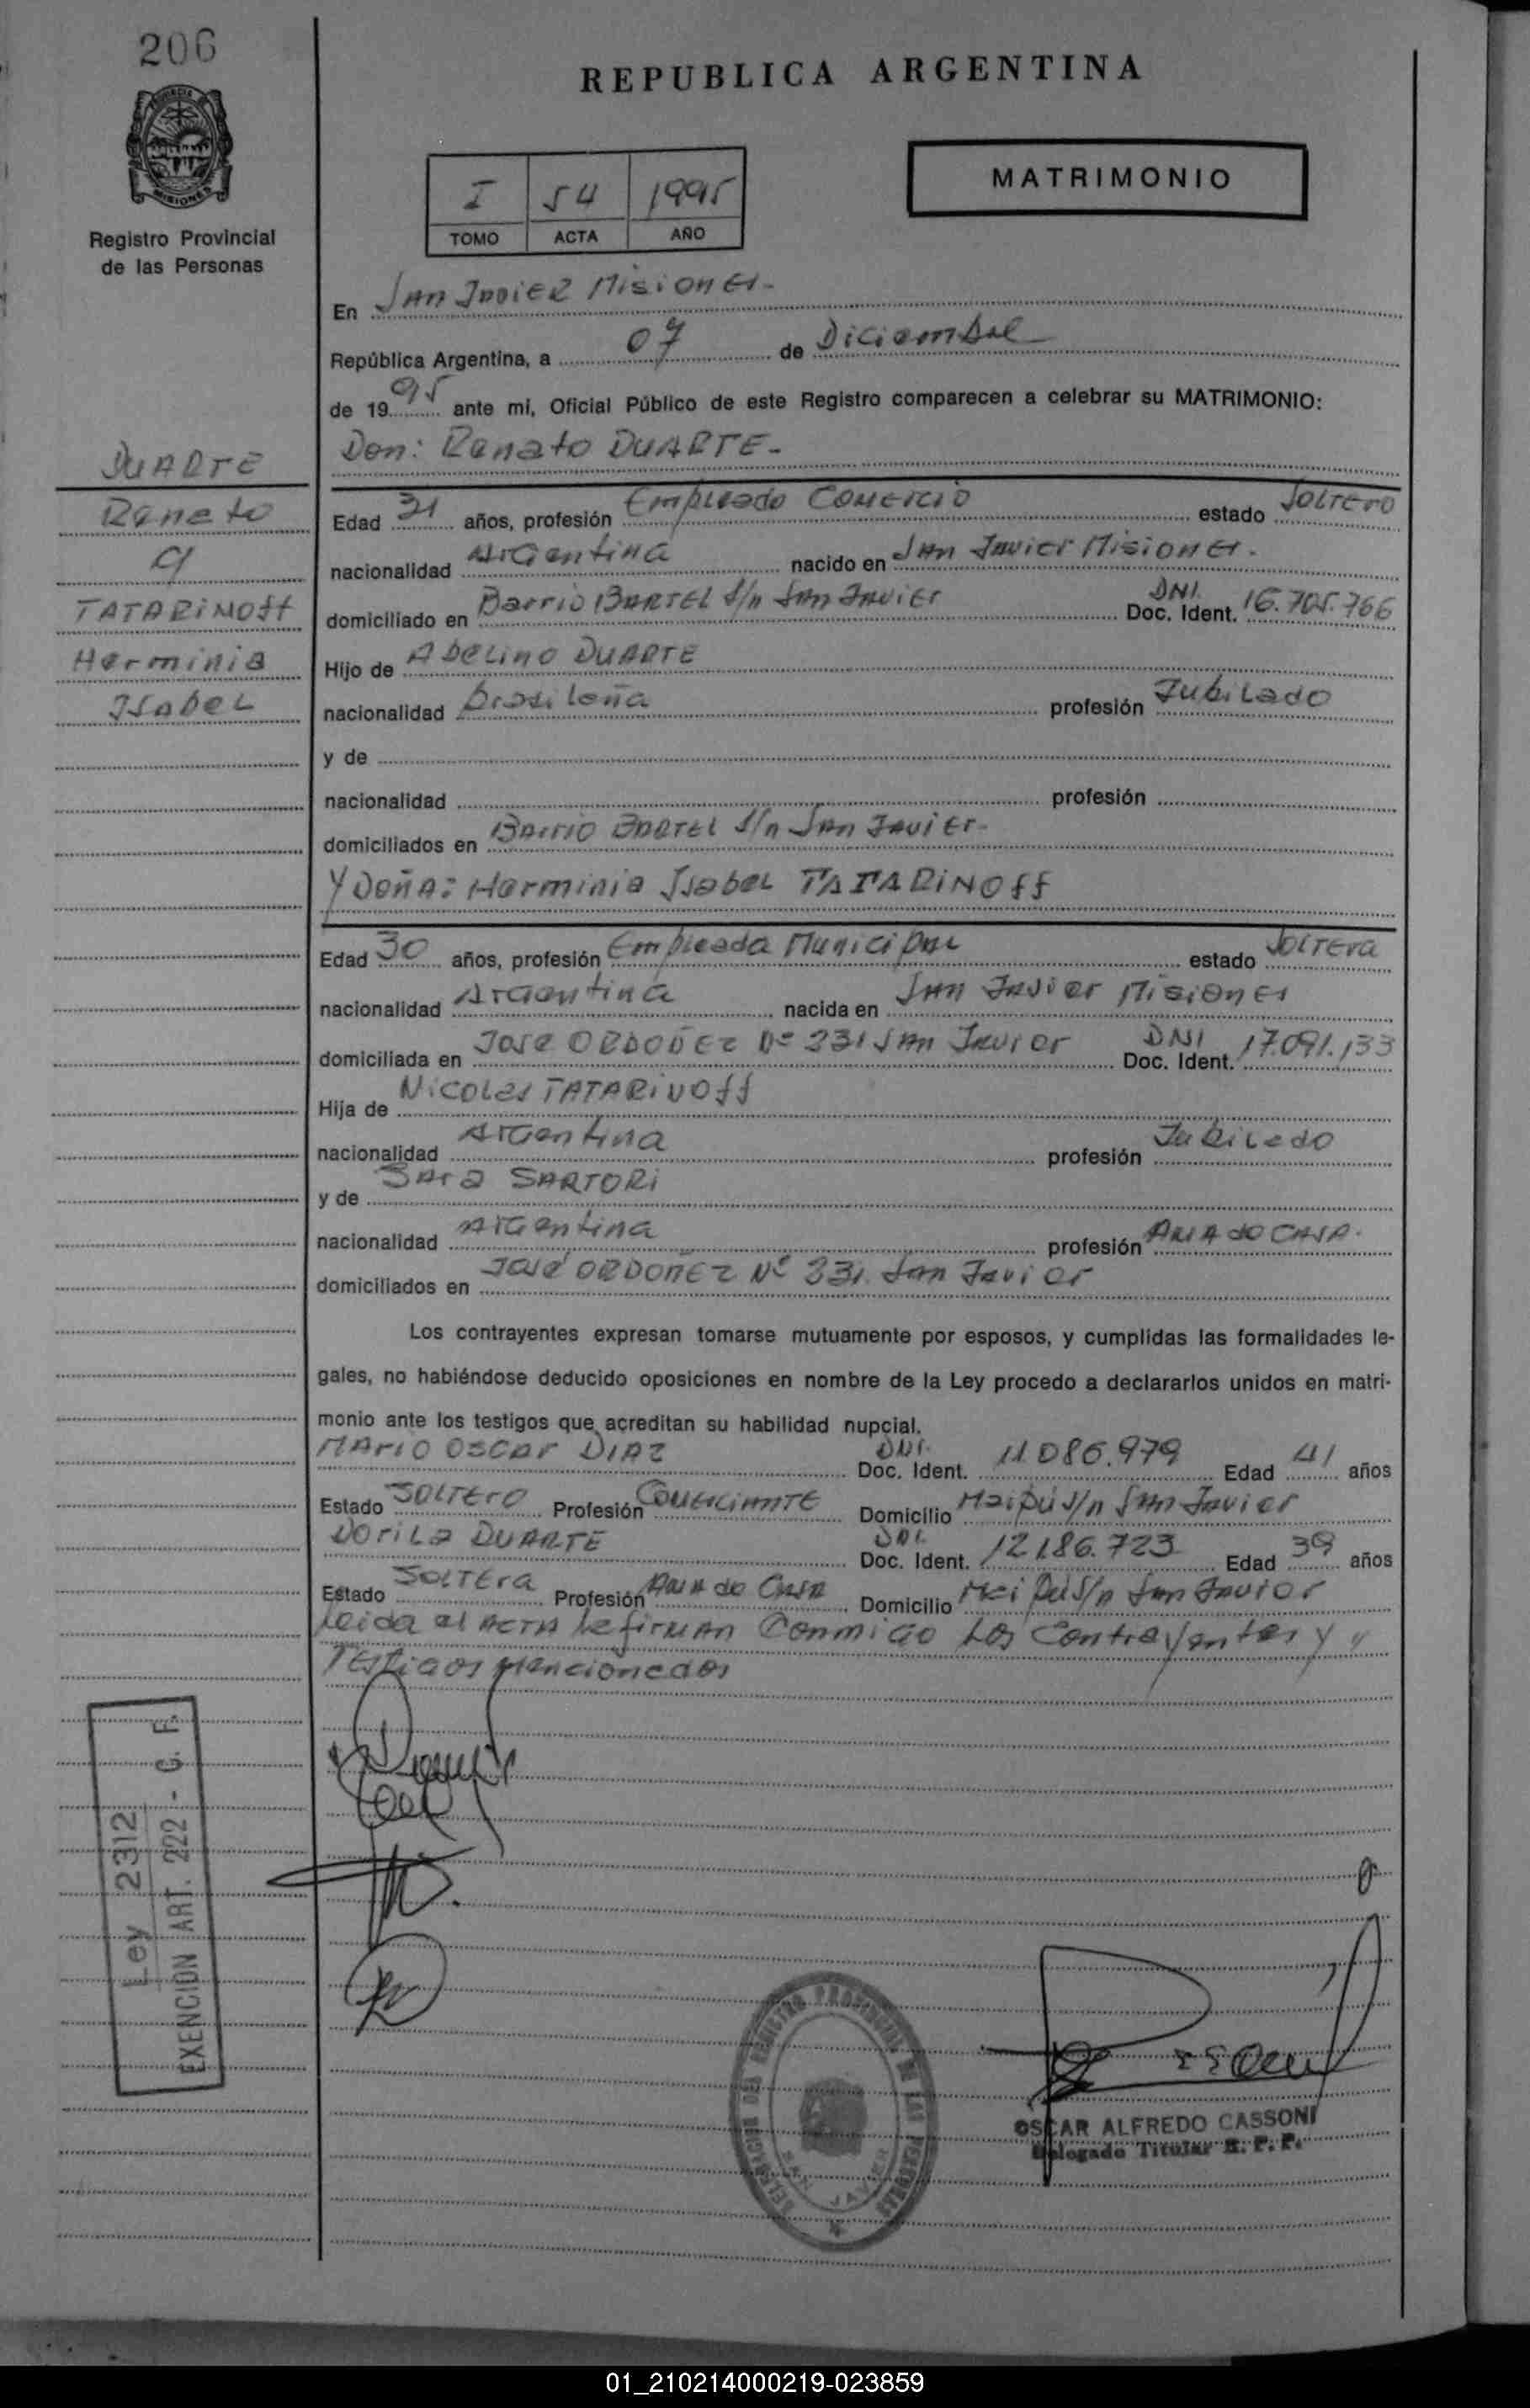 206
REPUBLICA ARGENTINA
MISIONES
Registro Provincial
de las Personas
I 54 1995
TOMO ACTA AÑO
MATRIMONIO
En San Javier Misiones-
República Argentina, a 07 de Diciembre
de 1995 ante mi, Oficial Público de este Registro comparecen a celebrar su MATRIMONIO:
Don: Renato DUARTE-
DUARTE
Renato
y
TATARINOff
Herminia
Isabel
Edad 31 años, profesión Empleado Comercio estado Soltero
nacionalidad Argentina nacido en San Javier Misiones.
domiciliado en Barrio BARTEL s/n San Javier DNI. Doc. Ident. 16.705.766
Hijo de ADELINO DUARTE
nacionalidad Brasileña profesión Jubilado
y de
nacionalidad profesión
domiciliados en Barrio BARTEL s/n San Javier-
Y DOÑA: Herminia Isabel TATARINOff
Edad 30 años, profesión Empleada Municipal estado Soltera
nacionalidad Argentina nacida en San Javier Misiones
domiciliada en Jose ORDOÑEZ Nº 331 San Javier DNI Doc. Ident. 17.091.133
Hija de Nicolas TATARINOff
nacionalidad Argentina profesión Jubilado
y de Sara SARTORI
nacionalidad Argentina profesión Ama de Casa.
domiciliados en José ORDOÑEZ Nº 331. San Javier
Los contrayentes expresan tomarse mutuamente por esposos, y cumplidas las formalidades le-
gales, no habiéndose deducido oposiciones en nombre de la Ley procedo a declararlos unidos en matri-
monio ante los testigos que acreditan su habilidad nupcial.
Mario Oscar DIAZ DNI. Doc. Ident. 11.086.979 Edad 41 años
Estado SOLTERO Profesión Comerciante Domicilio Maipú s/n San Javier
Dorila DUARTE DNI. Doc. Ident. 12.186.723 Edad 39 años
Estado SOLTERA Profesión Ama de Casa Domicilio Maipú s/n San Javier
Leida el Acta la firman Conmigo los Contrayentes y
Testigos mencionados
Ley 2312
EXENCION ART. 222 - C. F.
DELEGACION DEL REGISTRO PROVINCIAL DE LAS PERSONAS
SAN JAVIER
OSCAR ALFREDO CASSONI
Delegado Titular R. P. P.
01_210214000219-023859